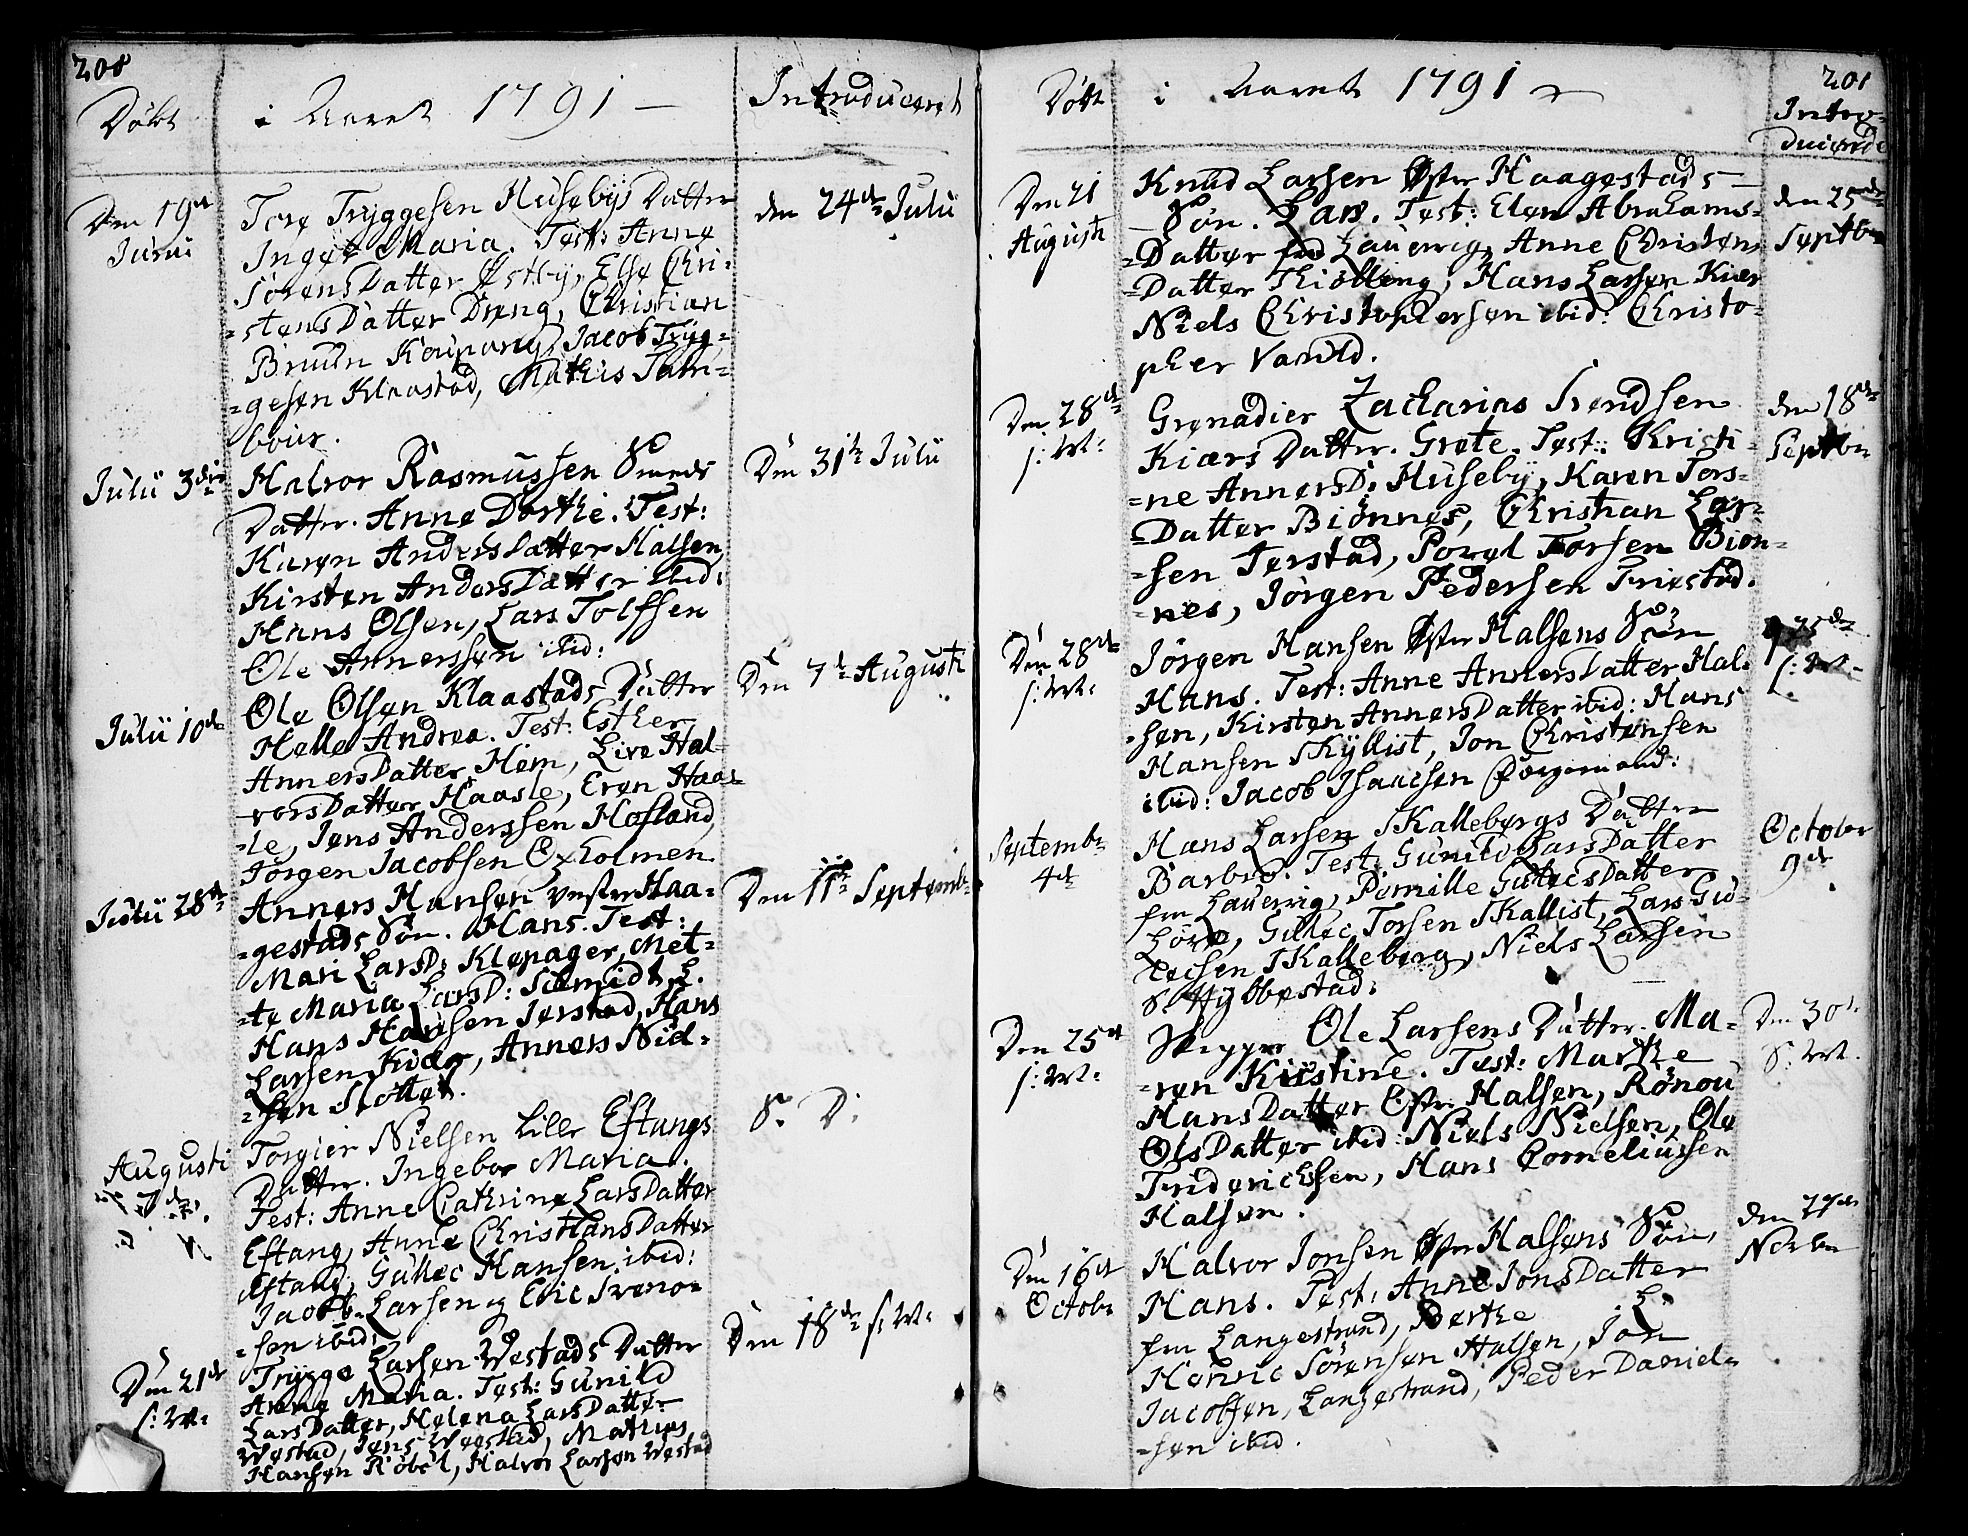 208
Døbt
i Aaret 1791 —
Introduceret
Den 19de
Junii
Tore Tryggesen Husebys Datter
Inger Maria. Test: Anne
Sørens Datter Østby, Else Chri-
-stens Datter Dreng, Christian
Bruun Kaupang, Jacob Tryg-
-gesen Klaastad, Mathis Tam-
bour.
den 24de Julii
Julii 3die
Halvor Rasmussen Smeds
Datter. Anne Dorthe. Test:
Karen Anders Datter Halsen,
Kirsten Anders Datter ibid:
Hans Olsen, Lars Tolfsen
Ole Annerssen ibid:
Den 31te Julii
Julii 10de
Ole Olsen Klaastads Datter
Helle Andrea. Test: Esther
Anners Datter Hem, Live Hal-
vors Datter Haasle, Even Haas-
-le, Jens Anderssen Hofland,
Jørgen Jacobsen Oxholmen.
Den 7de Augusti
Julii 28de
Anners Hansen Vester Haa-
-gestads Søn. Hans. Test:
Mari Lars D: Klepager, Met-
-te Maria Lars D: Schmidt L.
Hans Hansen Jerstad, Hans
Larsen Kiær, Anners Niel-
-sen Slottet.
Den 11te Septemb:
Augusti
7de
Torgier Nielsen Lille Eftangs
Datter. Ingebor Maria.
Test: Anne Cathrine Lars Datter
Eftang, Anne Christians Datter
Eftang, Gullec Hansen ibid:
Jacob Larsen og Eric Sveno-
-sen ibid:
S. D:
Den 21de
s: M:
Trygge Larsen Westads Datter
Anne Maria. Test: Gunild
Lars Datter, Helena Lars Datter
Westad, Jens Westad, Mathies
Hansen Røbek, Halvor Larsen Westad
Den 18de s: M:
Døbt
i Aaret 1791
201
Intro-
ducerede
Den 21
Augusti
Knud Larsen Øster Haagestads
Søn. Lars. Test: Elen Abrahams-
-Datter fra Lauervig, Anne Christens
-Datter Thiølling, Hans Larsen Kiær
Niels Christophersen ibid: Christo-
pher Vauild.
den 25de
Septbr
Den 28de
s: M:
Grenadier Zacharias Svendsen
Kiærs Datter. Grete. Test: Kristi-
-ne Anners D: Huseby, Karen Tors-
-Datter Biønnes, Christian Lar-
-sen Jerstad, Povel Torsen Biøn-
-nes, Jørgen Pedersen Friestad.
den 18de
Septbr
Den 28de
s: M:
Jørgen Hansen Øster Halsens Søn
Hans. Test: Anne Anners Datter Hal-
-sen, Kirsten Anners Datter ibid: Hans
Hansen Skÿllist, Jon Christensen
ibid: Jacob Isaachsen Bergemand:
25de
s: M:
Septembr
4de
Hans Larsen Skallebergs Datter
Barbro. Test: Gunild Lars Datter
fra Lauervig, Pernille Gullecs Datter
Løve, Gullec Torsen Skallist, Lars Gul-
lecsen Skalleberg, Niels Larsen
S. Hybbestad:
October
9de
Den 25de
s: M:
Skipper Ole Larsens Datter. Ma-
-ren Kirstine. Test: Marthe
Hans Datter Øster Halsen, Rønou
Ols Datter ibid: Niels Nielsen, Ole
Friderichsen, Hans Corneliussen
Halsen.
Den 30te
S: M.
Den 16de
Octobr
Halvor Jonsen Øster Halsens Søn,
Hans. Test: Anne Jons Datter
fra Langestrand, Berthe L.
Henric Sørensen Halsen, Jon
Jacobsen, Langestrand, Peder Daniel-
-sen ibid.
den 27de
Novbr